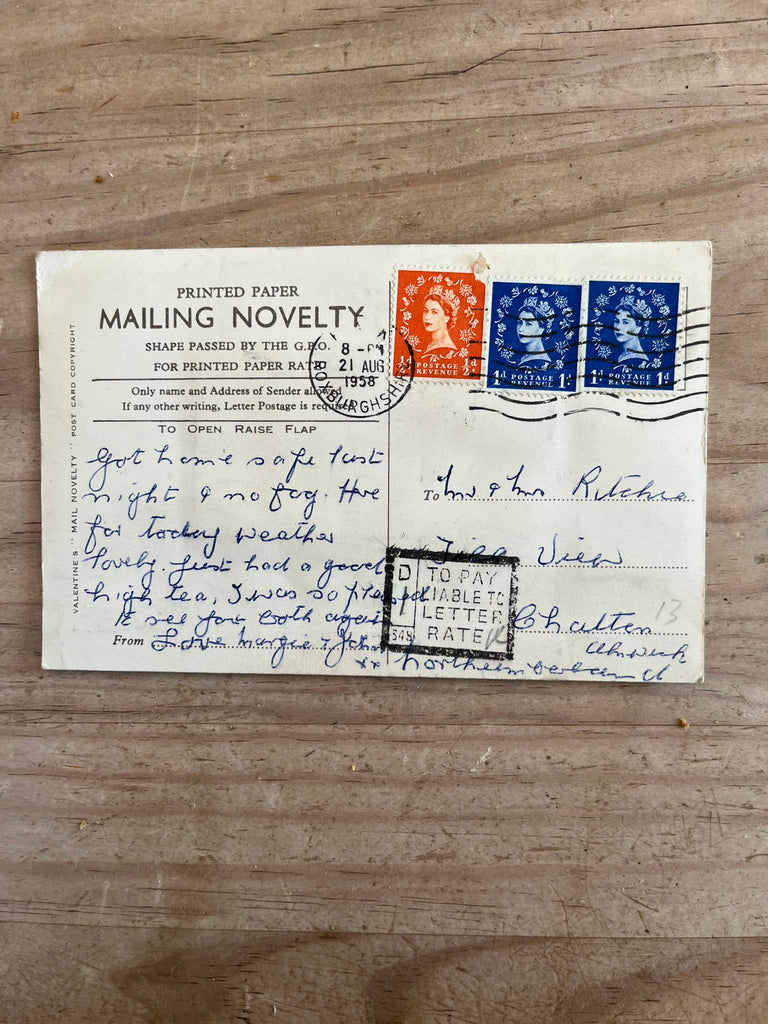 PRINTED PAPER
MAILING NOVELTY
SHAPE PASSED BY THE G.P.O.
FOR PRINTED PAPER RATE
Only name and Address of Sender allowed
If any other writing, Letter Postage is required
TO OPEN RAISE FLAP
VALENTINE'S "MAIL NOVELTY" POST CARD COPYRIGHT.
Got home safe last
night & no fog. Here
for today weather
lovely. Just had a good
high tea, I was so pleased
to see you both again
From Love Margie & John
xx
8 - PM
21 AUG
1958
ROXBURGHSHIRE
½d POSTAGE REVENUE ½d
1d POSTAGE REVENUE 1d
1d POSTAGE REVENUE 1d
To Mr & Mrs Ritchie
Till View
Chatton
Alnwick
Northumberland
13
D
1
S48
TO PAY
LIABLE TO
LETTER
RATE